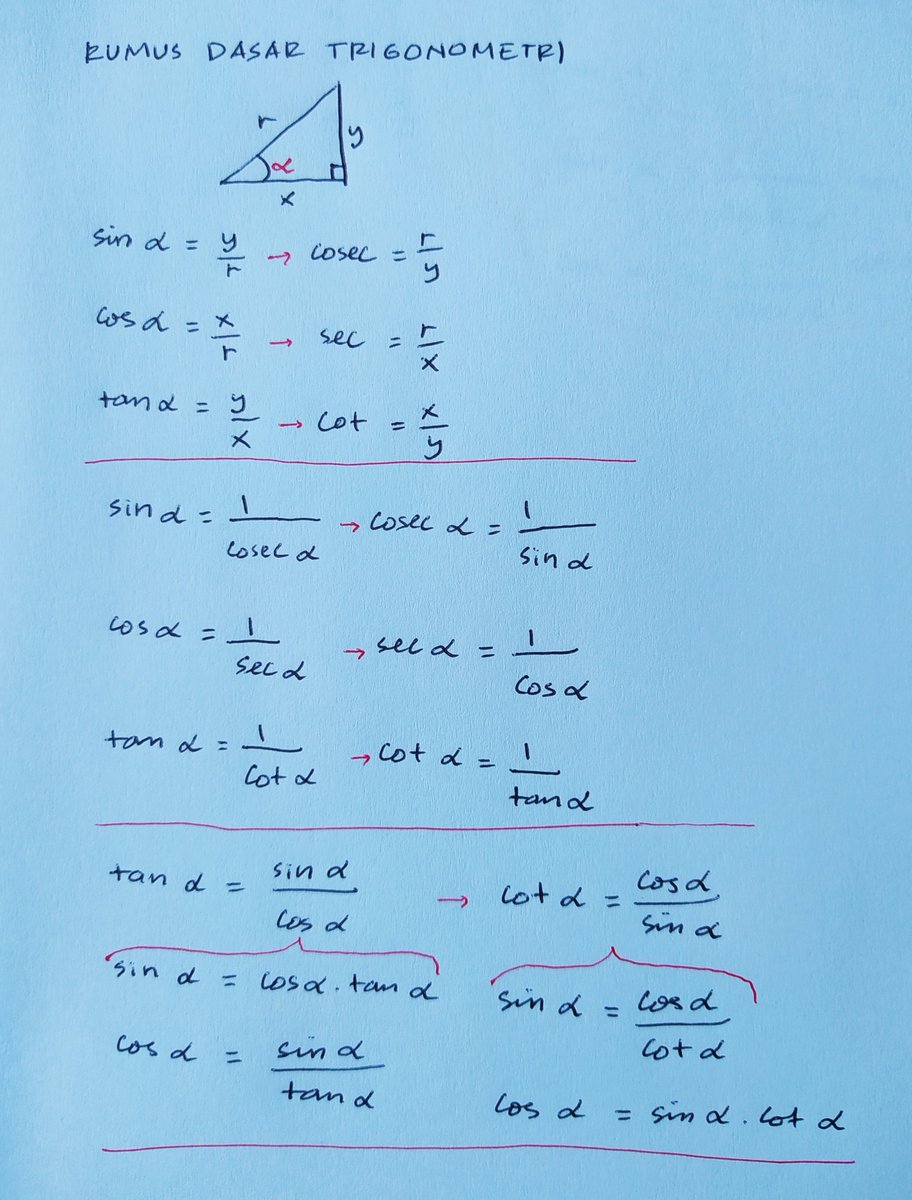 RUMUS DASAR TRIGONOMETRI
r
y
α
x
sin α = y/r → cosec = r/y
cos α = x/r → sec = r/x
tan α = y/x → cot = x/y
sin α = 1/cosec α → cosec α = 1/sin α
cos α = 1/sec α → sec α = 1/cos α
tan α = 1/cot α → cot α = 1/tan α
tan α = sin α/cos α → cot α = cos α/sin α
sin α = cos α . tan α
cos α = sin α/tan α
sin α = cos α/cot α
cos α = sin α . cot α